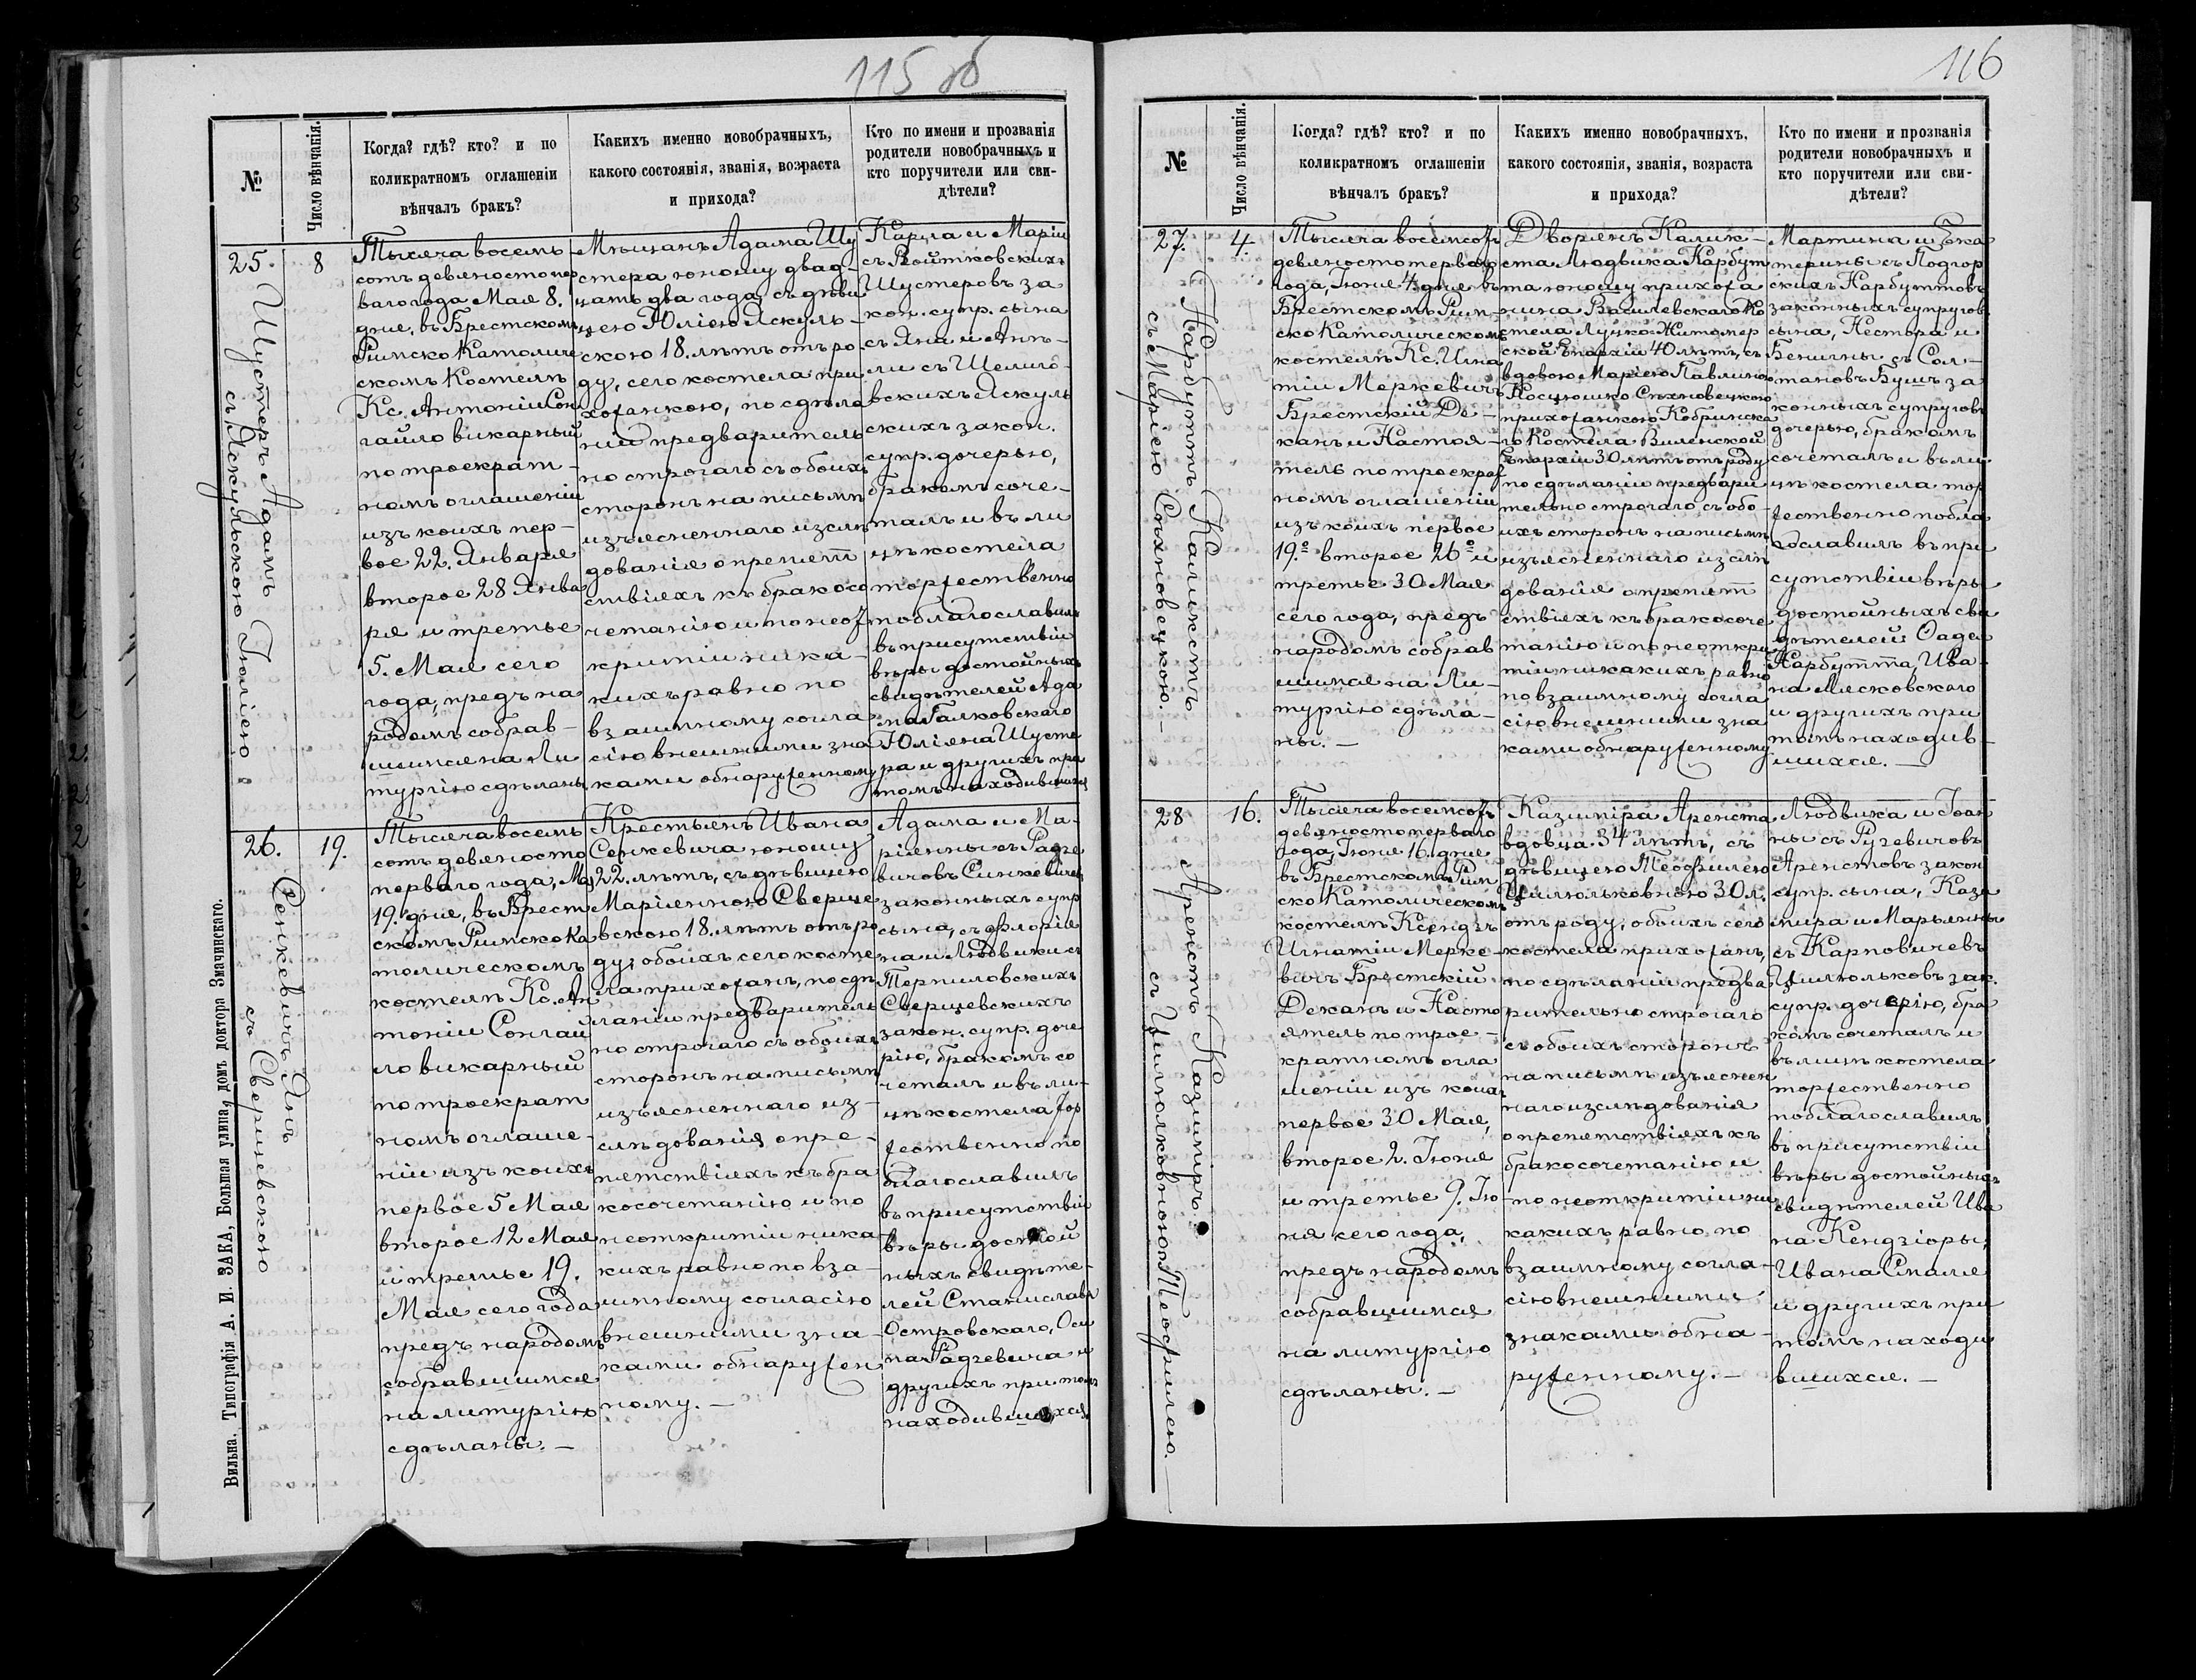 115 об
№
Число вѣнчанія.
Когда? гдѣ? кто? и по
коликратномъ оглашеніи
вѣнчалъ бракъ?
Какихъ именно новобрачныхъ,
какого состоянія, званія, возраста
и прихода?
Кто по имени и прозванія
родители новобрачныхъ и
кто поручители или сви-
дѣтели?
25.
Шустеръ Адамъ
съ Яскульскою Юліею
8
Тысяча восемь
сотъ девяносто пер
ваго года Мая 8.
дня, въ Брестскомъ
Римско Католиче
скомъ Костелѣ
Кс. Антоній Сон
гайло викарный
по троекрат-
номъ оглашеніи
изъ коихъ пер-
вое 22. Января
второе 28 Янва
ря и третье
5. Мая сего
года, предъ на
родомъ собрав-
шимся на Ли
тургію сдѣланы
Мѣщанъ Адама Шу
стера юношу двад-
цать два года, съ дѣви
цею Юліею Яскуль-
скою 18. лѣтъ отъ ро
ду, сего костела при
хожанкою, по сдѣла
ніи предваритель
но строгаго съ обоихъ
сторонъ на письмѣ
изъясненнаго изслѣ
дованія о препят
ствіяхъ къ бракосо
четанію и по неот
критіи ника-
кихъ равно по
взаимному согла
сію внешними зна
ками обнаруженному
Карла и Маріи
съ Войтковскихъ
Шустеровъ за
кон. супр. сына
съ Яна и Анѣ-
ли съ Шелиго-
вскихъ Яскуль
скихъ закон.
супр. дочерью,
бракомъ соче-
талъ и въ ли
цѣ костела
торжественно
поблагославилъ
въ присутствіи
вѣры достойныхъ
свидѣтелей Ада
ма Галковскаго
Юліяна Шусте
ра и другихъ при
томъ находившихся
26.
Сенкевичъ Янъ
съ Сверщевскою
19.
Тысяча восемь
сотъ девяносто
перваго года, Мая
19. дня, въ Брест
скомъ Римско Ка
толическомъ
костелѣ Кс. Ан
тоній Сонгай
ло викарный
по троекрат
номъ оглаше-
ніи изъ коихъ
первое 5 Мая
второе 12 Мая
и третье 19.
Мая сего года
предъ народомъ
собравшимся
на литургію
сдѣланы. —
Крестьянъ Ивана
Сенкевича юношу
22. лѣтъ, съ дѣвицею
Маріянною Сверще
вскою 18. лѣтъ отъ ро
ду, обоихъ сего косте
ла прихожанъ, по сдѣ
ланіи предваритель
но строгаго съ обоихъ
сторонъ на письмѣ
изъясненнаго из-
слѣдованія о пре-
пятствіяхъ къ бра
косочетанію и по
неоткритіи ника
кихъ равно по вза-
имному согласію
внешними зна-
ками обнаружен
ному. —
Адама и Ма-
ріянны съ Радзе
вичовъ Синкевичей
законныхъ супр
сына, съ Флорія
на и Людвики съ
Терпиловскихъ
Сверщевскихъ
закон. супр. доче
рію, бракомъ со
четалъ и въ ли-
цѣ костела тор
жественно по
благославилъ
въ присутствіи
вѣры достой
ныхъ свидѣте-
лей Станислава
Островскаго, Оси
па Радзевича и
другихъ при томъ
находившихся.
Вильна. Типографія А. И. ЗАКА, Большая улица, домъ доктора Змачинскаго.
116
№
Число вѣнчанія.
Когда? гдѣ? кто? и по
коликратномъ оглашеніи
вѣнчалъ бракъ?
Какихъ именно новобрачныхъ,
какого состоянія, званія, возраста
и прихода?
Кто по имени и прозванія
родители новобрачныхъ и
кто поручители или сви-
дѣтели?
27.
Нарбуттъ Каликстъ
съ Маріею Сѣхновецкою. —
4.
Тысяча восемсотъ
девяносто перваго
года, Іюня 4 дня въ
Брестскомъ Рим-
ско Католическомъ
костелѣ Кс. Игна
тій Меркевичъ
Брестскій Де-
канъ и Настоя-
тель по троекрат
номъ оглашеніи
изъ коихъ первое
19.е второе 26е и
третье 30 Мая
сего года, предъ
народомъ собрав
шимся на Ли-
тургію сдѣла-
ны. —
Дворянъ Калик-
ста Людвика Нарбут
та юношу прихожа
нина Василевскаго Ко
стела Луцко-Житомер
ской Епархіи 40 лѣтъ, съ
вдовою Маріею Павлиною
Косцюшко Сѣхновецкою
прихожанкою Кобринска
го Костела Виленской
Епархіи 30 лѣтъ отъ роду
по сдѣланіи предвари
тельно строгаго съ обо-
ихъ сторонъ на письмѣ
изъясненнаго изслѣ
дованія о препят
ствіяхъ къ бракосоче
танію и по неоткри
тіи никакихъ равно
по взаимному согла
сію внешними зна
ками обнаруженному
Мартина и Ека
терины съ Подгор
скихъ Нарбуттовъ
законныхъ супругов
сына, Нестора и
Бенины съ Сол-
тановъ Бушъ за
конныхъ супруговъ
дочерью, бракомъ
сочеталъ и въ ли
цѣ костела тор
жественно побла
гославилъ въ при
сутствіи вѣры
достойныхъ сви
дѣтелей Фаде
я Нарбутта, Ива-
на Лясковскаго
и другихъ при
томъ находив-
шихся. —
28
Аренстъ Казиміръ.
съ Цилюлковною Теофилею. —
16.
Тысяча восемсотъ
девяносто перваго
года, Іюня 16. дня
въ Брестскомъ Рим
ско Католическомъ
костелѣ Ксендзъ
Игнатій Мерке-
вичъ Брестскій
Деканъ и Насто
ятель по трое-
кратномъ огла
шеніи изъ коихъ
первое 30 Мая,
второе 2. Іюня
и третье 9. Ію
ня сего года,
предъ народомъ
собравшимся
на литургію
сдѣланы. —
Казиміра Аренста
вдовца 34 лѣтъ, съ
дѣвицею Теофилею
Цилюльковною 30 л.
отъ роду, обоихъ сего
костела прихожанъ,
по сдѣланіи предва
рительно строгаго
съ обоихъ сторонъ
на письмѣ изъяснен
наго изслѣдованія
о препятствіяхъ къ
бракосочетанію и
по неоткритіи ни
какихъ равно по
взаимному согла-
сію внешними
знаками обна-
руженному. —
Людвика и Іоан
ны съ Рузевичовъ
Аренстовъ закон
супр. сына, Кази
мира и Марьянны
съ Карповичевъ
Цилюльковъ зак.
супр. дочерію, бра
комъ сочеталъ и
въ лицѣ костела
торжественно
поблагославилъ
въ присутствіи
вѣры достойныхъ
свидѣтелей Ива
на Кендзіоры,
Ивана Смаля
и другихъ при
томъ находи
вшихся. —